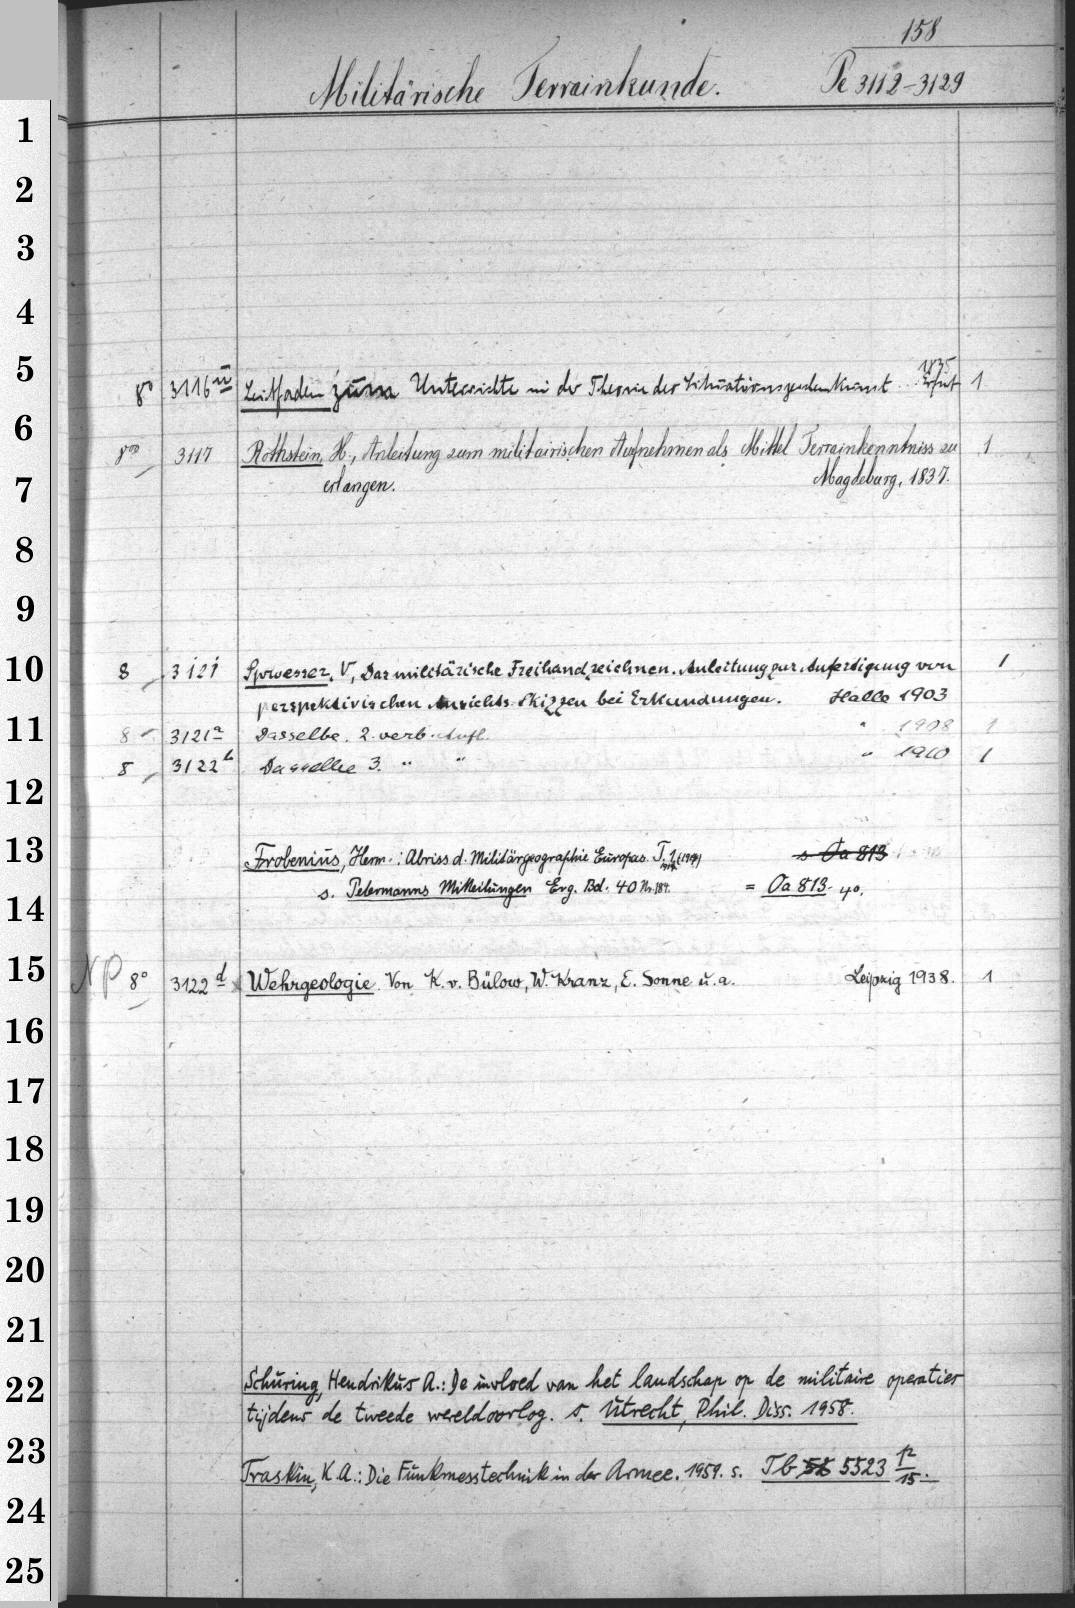 158
Militärische Terrainkunde. Pe 3112-3129
1
2
3
4
5
1835
8° 3116 ü Leitfaden zum Unterrichte in der Theorie der Situationszeichenkunst Erfurt 1
6
8vo 3117 Rothstein, H., Anleitung zum militairischen Aufnehmen als Mittel Terrainkenntniss zu 1
7
erlangen. Magdeburg, 1837.
8
9
10
8 3121 Sproesser, V, Das militärische Freihandzeichnen. Anleitung zur Anfertigung von 1
perspektivischen Ansichts-Skizzen bei Erkundungen. Halle 1903
11
8 3121a Dasselbe. 2. verb. Aufl. " 1908 1
8 3122b Dasselbe 3. " " " 1910 1
12
13
Frobenius, Herm.: Abriss d. Militärgeographie Europas. T. 1 s Oa 813
s. Petermanns Mitteilungen Erg. Bd. 40 Nr. 184. = Oa 813. 4°.
14
15
NP 8° 3122 d Wehrgeologie. Von K. v. Bülow, W. Kranz, E. Sonne u. a. Leipzig 1938. 1
16
17
18
19
20
21
22
Schuring, Hendrikus A.: De invloed van het landschap op de militaire operaties
tijdens de tweede wereldoorlog. s. Utrecht, Phil. Diss. 1958.
23
Traskin, K. A.: Die Funkmesstechnik in der Armee. 1959. s. Tb 5523 12/15.
24
25